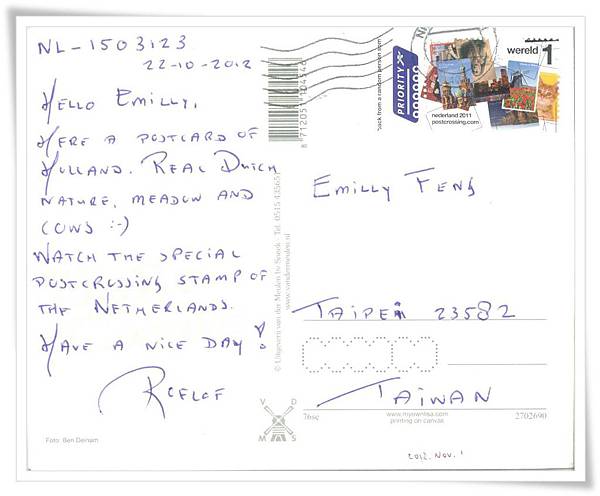 NL-1503123
22-10-2012
HELLO EMILLY,
HERE A POSTCARD OF
HOLLAND. REAL DUTCH
NATURE, MEADOW AND
COWS :-)
WATCH THE SPECIAL
POSTCROSSING STAMP OF
THE NETHERLANDS.
HAVE A NICE DAY!
ROELOF
Foto: Ben Deinam
8 712051 104546
© Uitgeverij van der Meulen bv Sneek - Tel. 0515 435651
www.vandermeulen.nl
V D
M S
PRIORITY
wereld 1
nederland 2011
postcrossing.com
EMILLY FENG
TAIPEI 23582
TAIWAN
76sc
www.myownlisa.com
printing on canvas
2702690
2012. NOV. 1